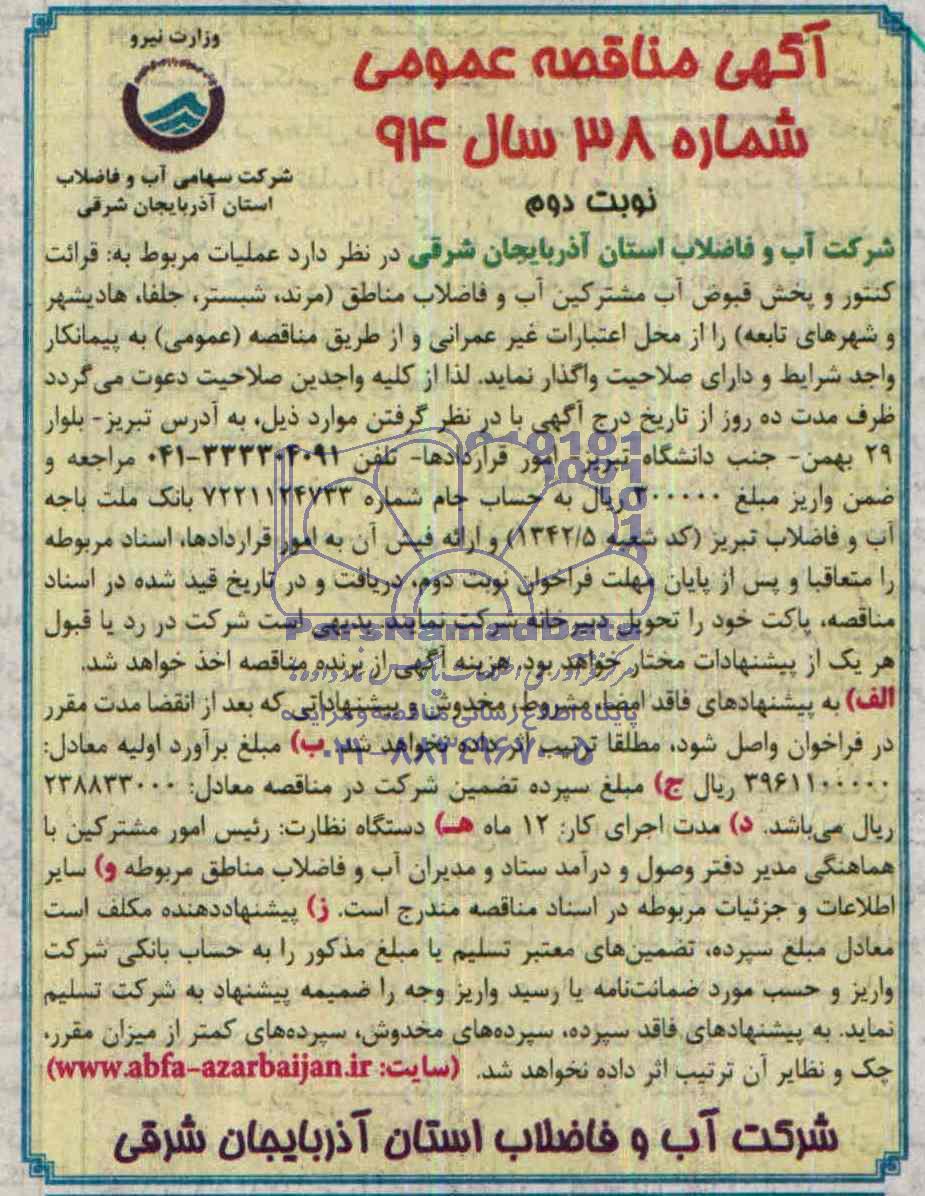 وزارت نیرو
شرکت سهامی آب و فاضلاب
استان آذربایجان شرقی
آگهی مناقصه عمومی
شماره ۳۸ سال ۹۴
نوبت دوم
شرکت آب و فاضلاب استان آذربایجان شرقی در نظر دارد عملیات مربوط به: قرائت
کنتور و پخش قبوض آب مشترکین آب و فاضلاب مناطق (مرند، شبستر، جلفا، هادیشهر
و شهرهای تابعه) را از محل اعتبارات غیر عمرانی و از طریق مناقصه (عمومی) به پیمانکار
واجد شرایط و دارای صلاحیت واگذار نماید. لذا از کلیه واجدین صلاحیت دعوت می‌گردد
ظرف مدت ده روز از تاریخ درج آگهی با در نظر گرفتن موارد ذیل، به آدرس تبریز- بلوار
۲۹ بهمن- جنب دانشگاه تبریز- امور قراردادها- تلفن ۳۳۳۰۴۰۹۱-۰۴۱ مراجعه و
ضمن واریز مبلغ ۲۰۰۰۰۰ ریال به حساب جام شماره ۷۲۲۱۱۲۴۷۳۳ بانک ملت باجه
آب و فاضلاب تبریز (کد شعبه ۱۳۴۲/۵) و ارائه فیش آن به امور قراردادها، اسناد مربوطه
را متعاقبا و پس از پایان مهلت فراخوان نوبت دوم، دریافت و در تاریخ قید شده در اسناد
مناقصه، پاکت خود را تحویل دبیرخانه شرکت نمایند. بدیهی است شرکت در رد یا قبول
هر یک از پیشنهادات مختار خواهد بود. هزینه آگهی از برنده مناقصه اخذ خواهد شد.
الف) به پیشنهادهای فاقد امضا، مشروط، مخدوش و پیشنهاداتی که بعد از انقضا مدت مقرر
در فراخوان واصل شود، مطلقا ترتیب اثر داده نخواهد شد. ب) مبلغ برآورد اولیه معادل:
۳۹۶۱۱۰۰۰۰۰ ریال ج) مبلغ سپرده تضمین شرکت در مناقصه معادل: ۲۳۸۸۳۳۰۰۰
ریال می‌باشد. د) مدت اجرای کار: ۱۲ ماه هـ) دستگاه نظارت: رئیس امور مشترکین با
هماهنگی مدیر دفتر وصول و درآمد ستاد و مدیران آب و فاضلاب مناطق مربوطه و) سایر
اطلاعات و جزئیات مربوطه در اسناد مناقصه مندرج است. ز) پیشنهاددهنده مکلف است
معادل مبلغ سپرده، تضمین‌های معتبر تسلیم یا مبلغ مذکور را به حساب بانکی شرکت
واریز و حسب مورد ضمانت‌نامه یا رسید واریز وجه را ضمیمه پیشنهاد به شرکت تسلیم
نماید. به پیشنهادهای فاقد سپرده، سپرده‌های مخدوش، سپرده‌های کمتر از میزان مقرر،
چک و نظایر آن ترتیب اثر داده نخواهد شد. (سایت: www.abfa-azarbaijan.ir)
شرکت آب و فاضلاب استان آذربایجان شرقی
ParsNamadData
پایگاه اطلاع رسانی مناقصه و مزایده